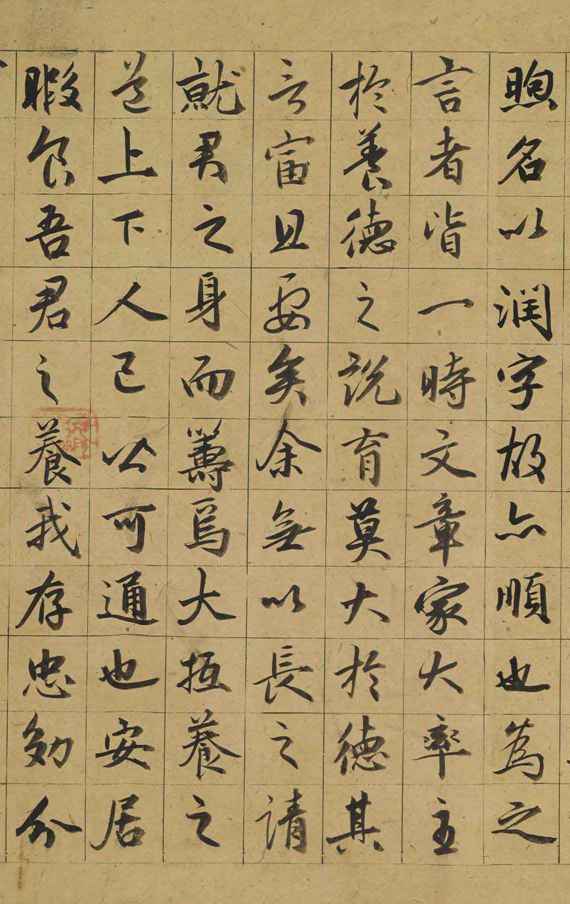 煦名以潤字故亦順也為之
言者皆一時文章家大率主
於養德之說育莫大於德其
言富且要矣余無以長之請
就君之身而籌焉大抵養之
道上下人己公可通也安居
暇食吾君之養我存忠効分